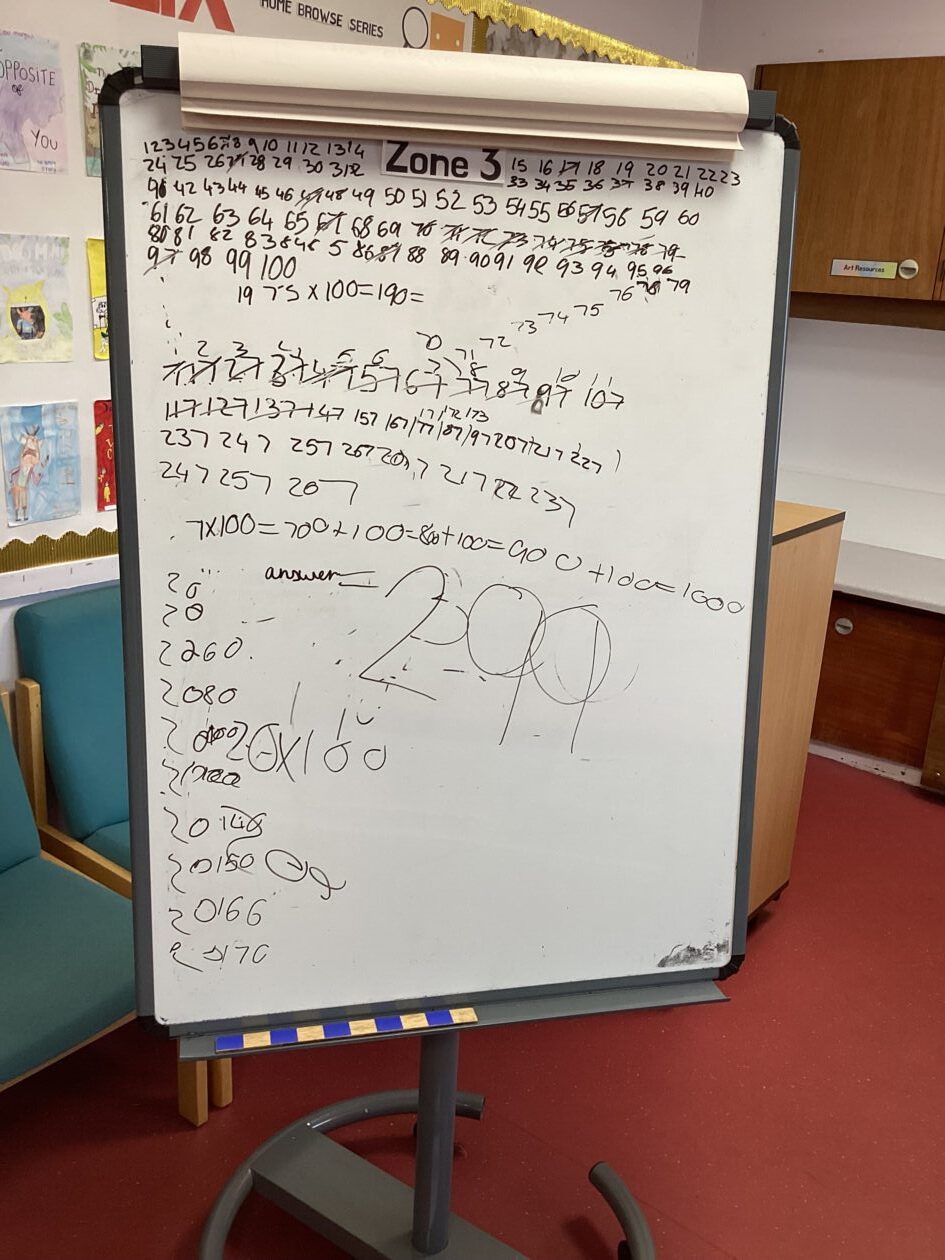 HOME BROWSE SERIES
OPPOSITE
of
YOU
Zone 3
1 2 3 4 5 6 7 8 9 10 11 12 13 14
15 16 17 18 19 20 21 22 23
24 25 26 27 28 29 30 31 32
33 34 35 36 37 38 39 40
42 43 44 45 46 47 48 49 50 51 52 53 54 55 56 57 58 59 60
61 62 63 64 65 67 68 69 70 71 72 73 74 75 76 78 79
80 81 82 83 84 5 86 87 88 89 90 91 92 93 94 95 96
97 98 99 100
19 75 x 100 = 190 =
70 71 72 73 74 75 76 78 79
2 3 4 5 6 7 8 9 10 11
7 17 27 37 47 57 67 77 87 97 107
117 127 137 147 157 167 177 187 197 207 217 227
171 172 173
237 247 257 267 207 217 227 237
247 257 207
7x100=700+100=800+100=900+100=1000
answer=299
20
20
2260
2080
20x100
20140
20150
20166
20170
Art Resources